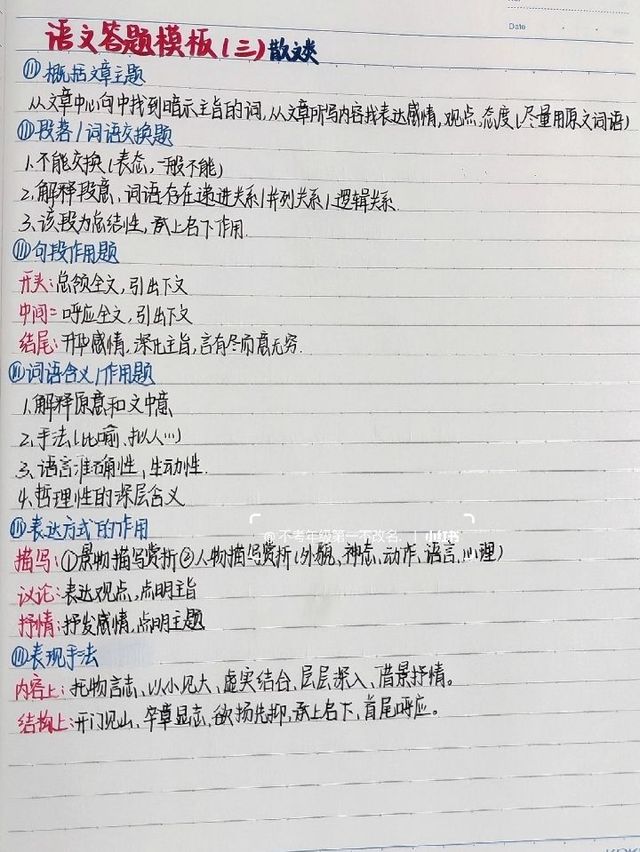 Date
语文答题模板(三)散文类
概括文章主题
从文章中心句中找到暗示主旨的词,从文章所写内容找表达感情,观点,态度(尽量用原文词语)
段落/词语交换题
1.不能交换(表态,一般不能)
2.解释段意,词语存在递进关系/并列关系/逻辑关系
3.该段为总结性,承上启下作用
句段作用题
开头:总领全文,引出下文
中间:呼应全文,引出下文
结尾:升华感情,深化主旨,言有尽而意无穷.
词语含义/作用题
1.解释原意和文中意
2.手法(比喻、拟人…)
3.语言准确性,生动性.
4.哲理性的深层含义
@不考年级第一不改名. | 小红书
表达方式的作用
描写:①景物描写赏析②人物描写赏析(外貌、神态、动作、语言、心理)
议论:表达观点,点明主旨
抒情:抒发感情,点明主题
表现手法
内容上:托物言志、以小见大、虚实结合、层层深入、借景抒情。
结构上:开门见山、卒章显志、欲扬先抑,承上启下、首尾呼应。